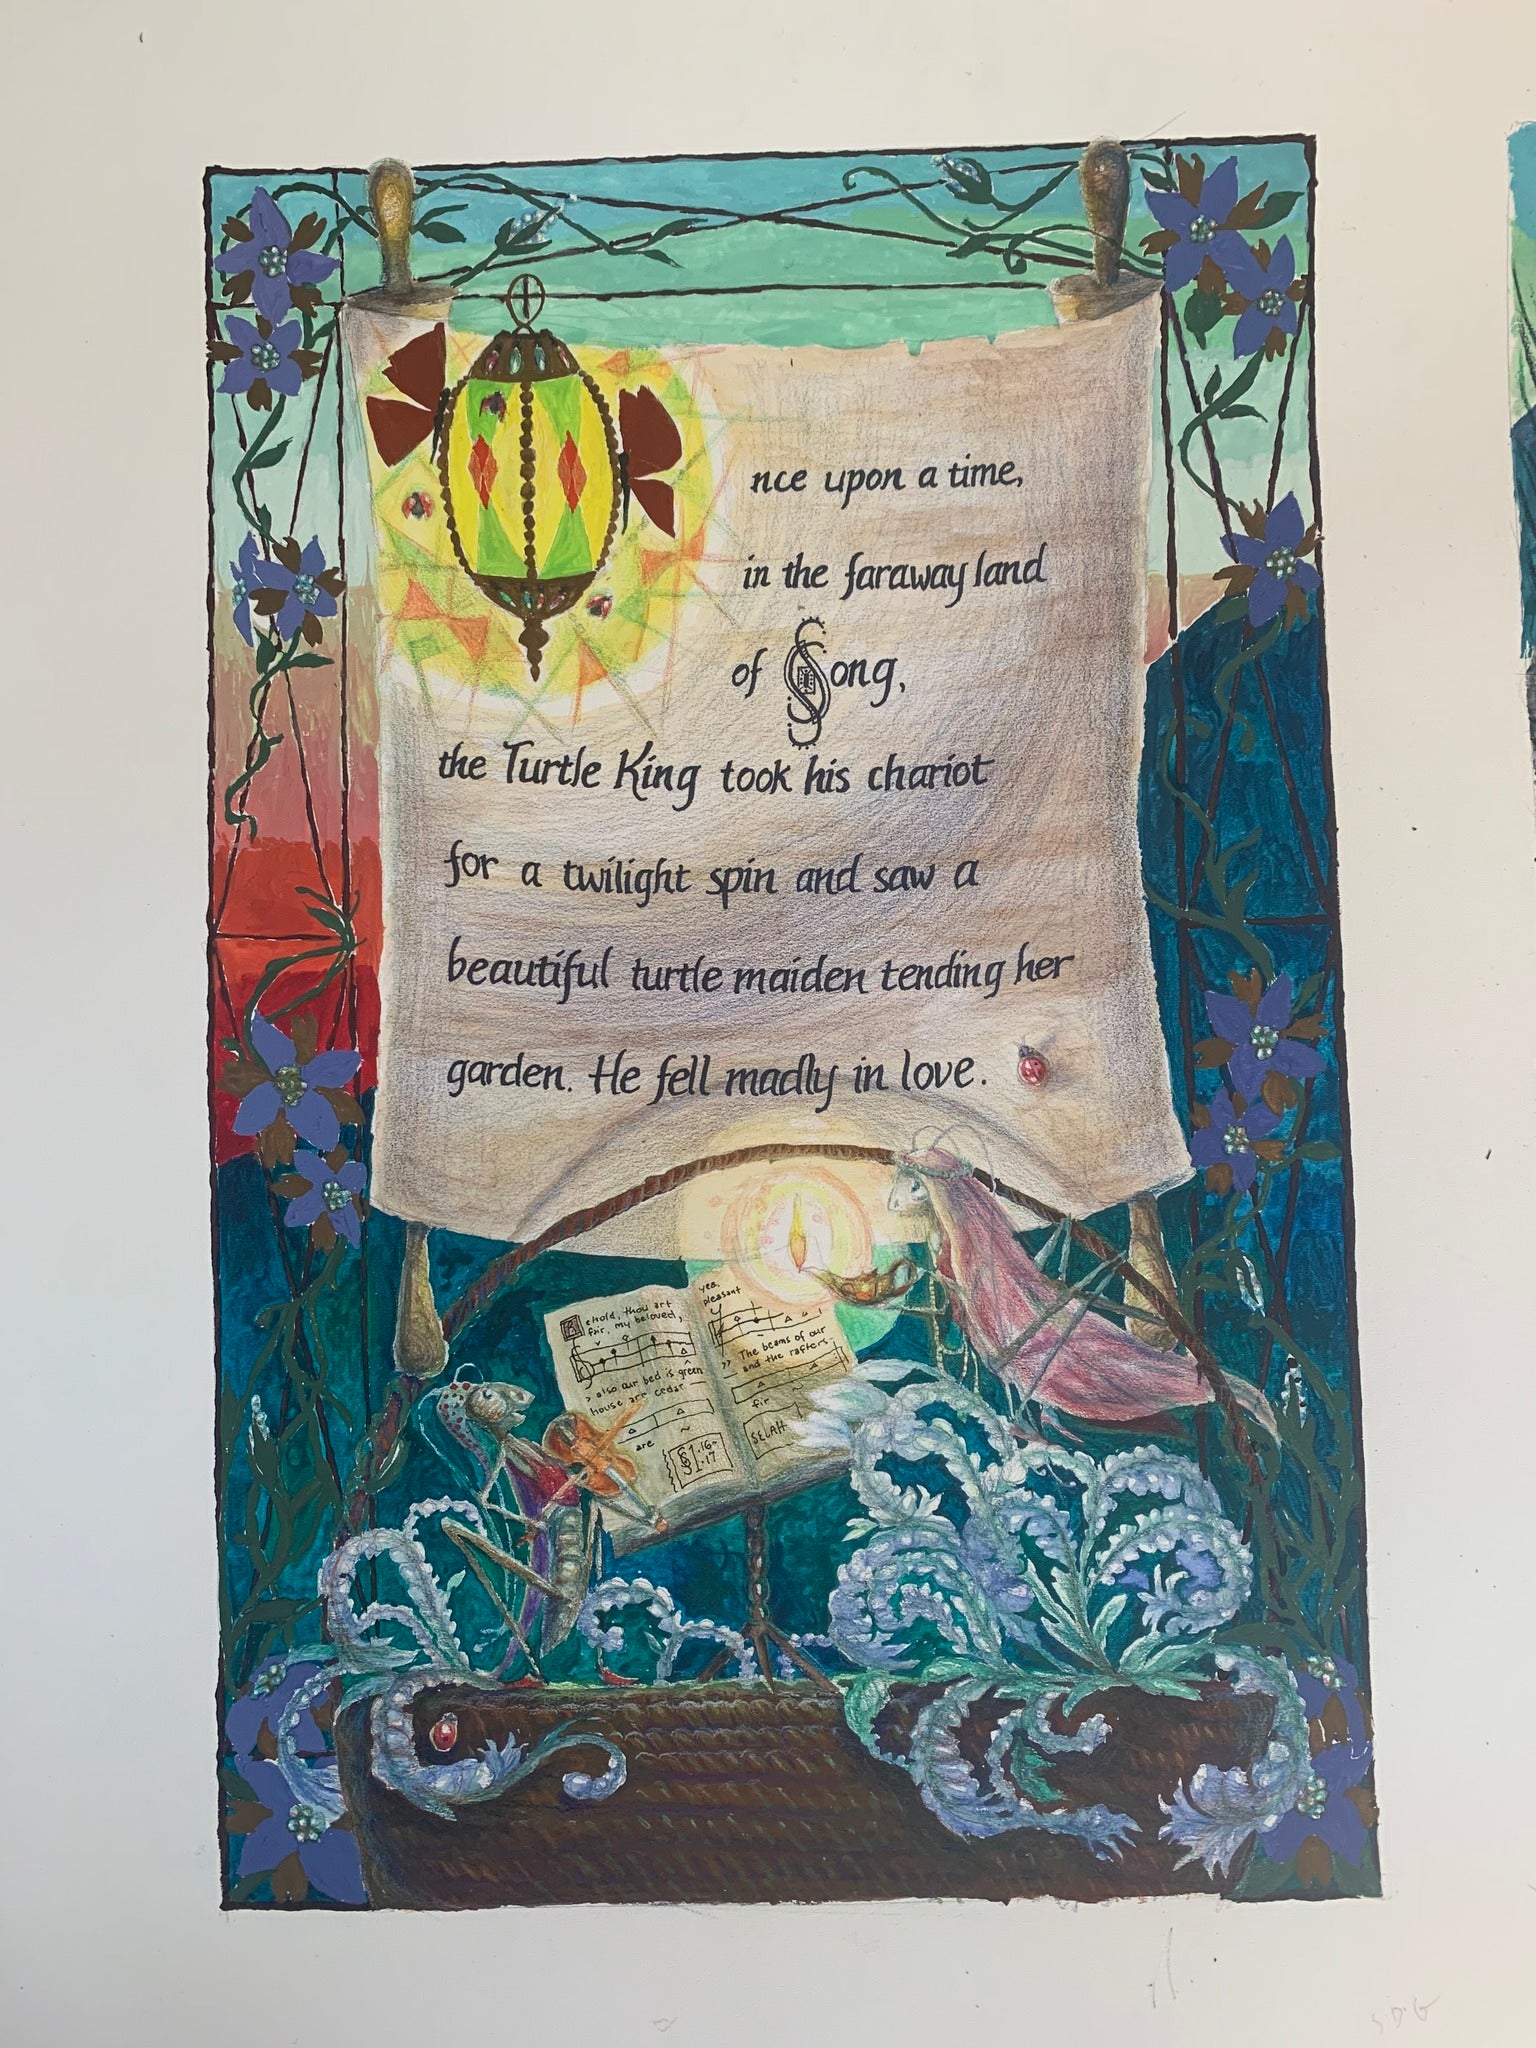 nce upon a time,
in the faraway land
of Song,
the Turtle King took his chariot
for a twilight spin and saw a
beautiful turtle maiden tending her
garden. He fell madly in love.
Behold, thou art
fair, my beloved,
also our bed is green
house are cedar
are
1:16-
17
yea,
pleasant
The beams of our
and the rafters
fir
SELAH
S D G